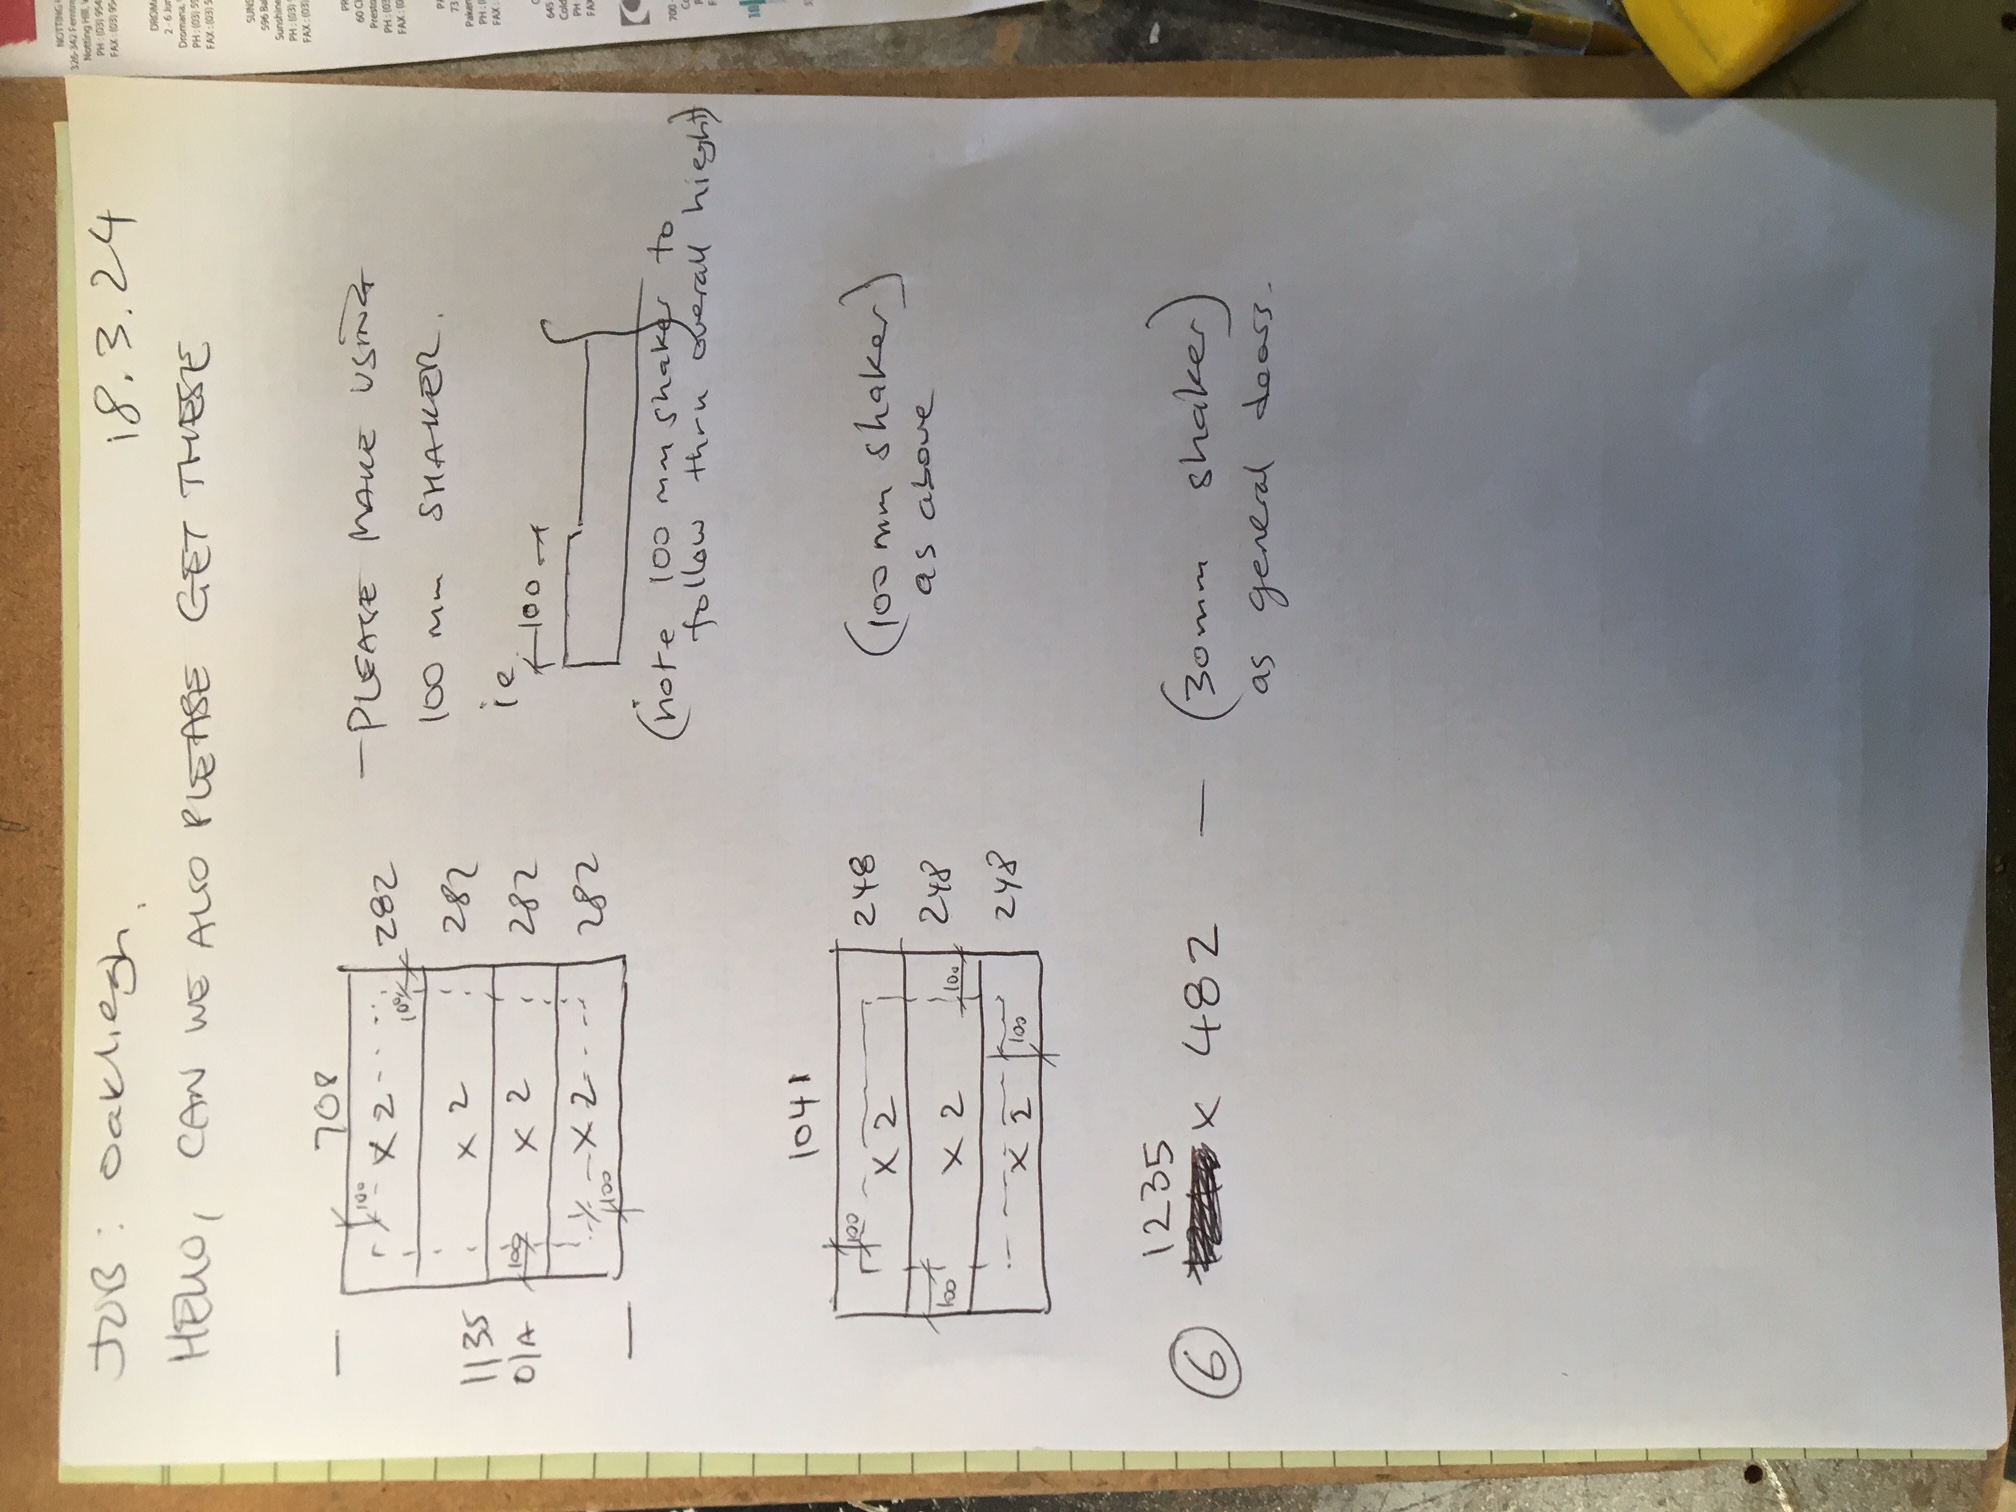 JOB: Oakliegh. 18.3.24
HELLO, CAN WE ALSO PLEASE GET THESE
708
- PLEASE MAKE USING
100 mm SHAKER.
ie
100
(note 100 mm shaker to
follow thru overall hieght)
1135
O/A
100
x 2
100
282
x 2
282
100
x 2
282
x 2
100
282
1041
100
x 2
248
(100 mm shaker)
as above
100
x 2
100
248
x 2
100
248
6
1235
x 482 - (30mm shaker)
as general doors.